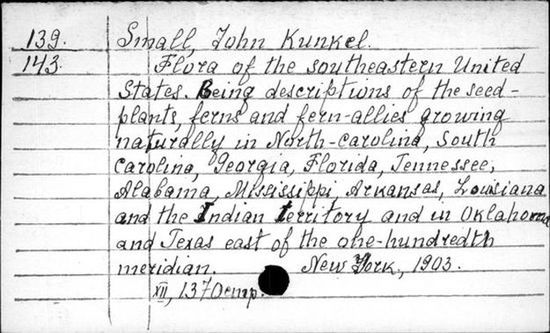 139. Small, John Kunkel.
143. Flora of the southeastern United
States. Being descriptions of the seed-
plants, ferns and fern-allies growing
naturally in North-carolina, South
Carolina, Georgia, Florida, Tennessee,
Alabama, Mississippi, Arkansas, Louisiana
and the Indian territory and in Oklahoma
and Texas east of the one-hundredth
meridian. New York, 1903.
XII, 1370